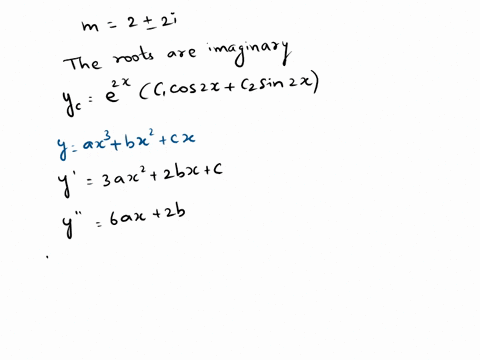 m = 2 ± 2i
The roots are imaginary
y_c = e^{2x} (C_1 cos2x + C_2 sin 2x)
y = ax^3 + bx^2 + cx
y' = 3ax^2 + 2bx + c
y'' = 6ax + 2b